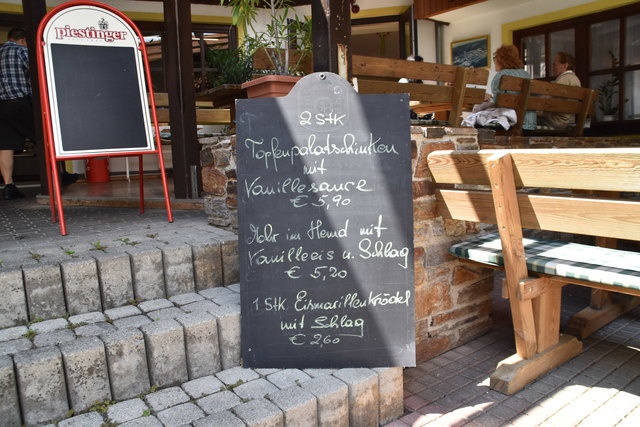 piestinger
2 Stk
Topfenpalatschinken
mit
Vanillesauce
€ 5,90
Mohr im Hemd mit
Vanilleeis u. Schlag
€ 5,20
1 Stk. Eismarillenknödel
mit Schlag
€ 2,60